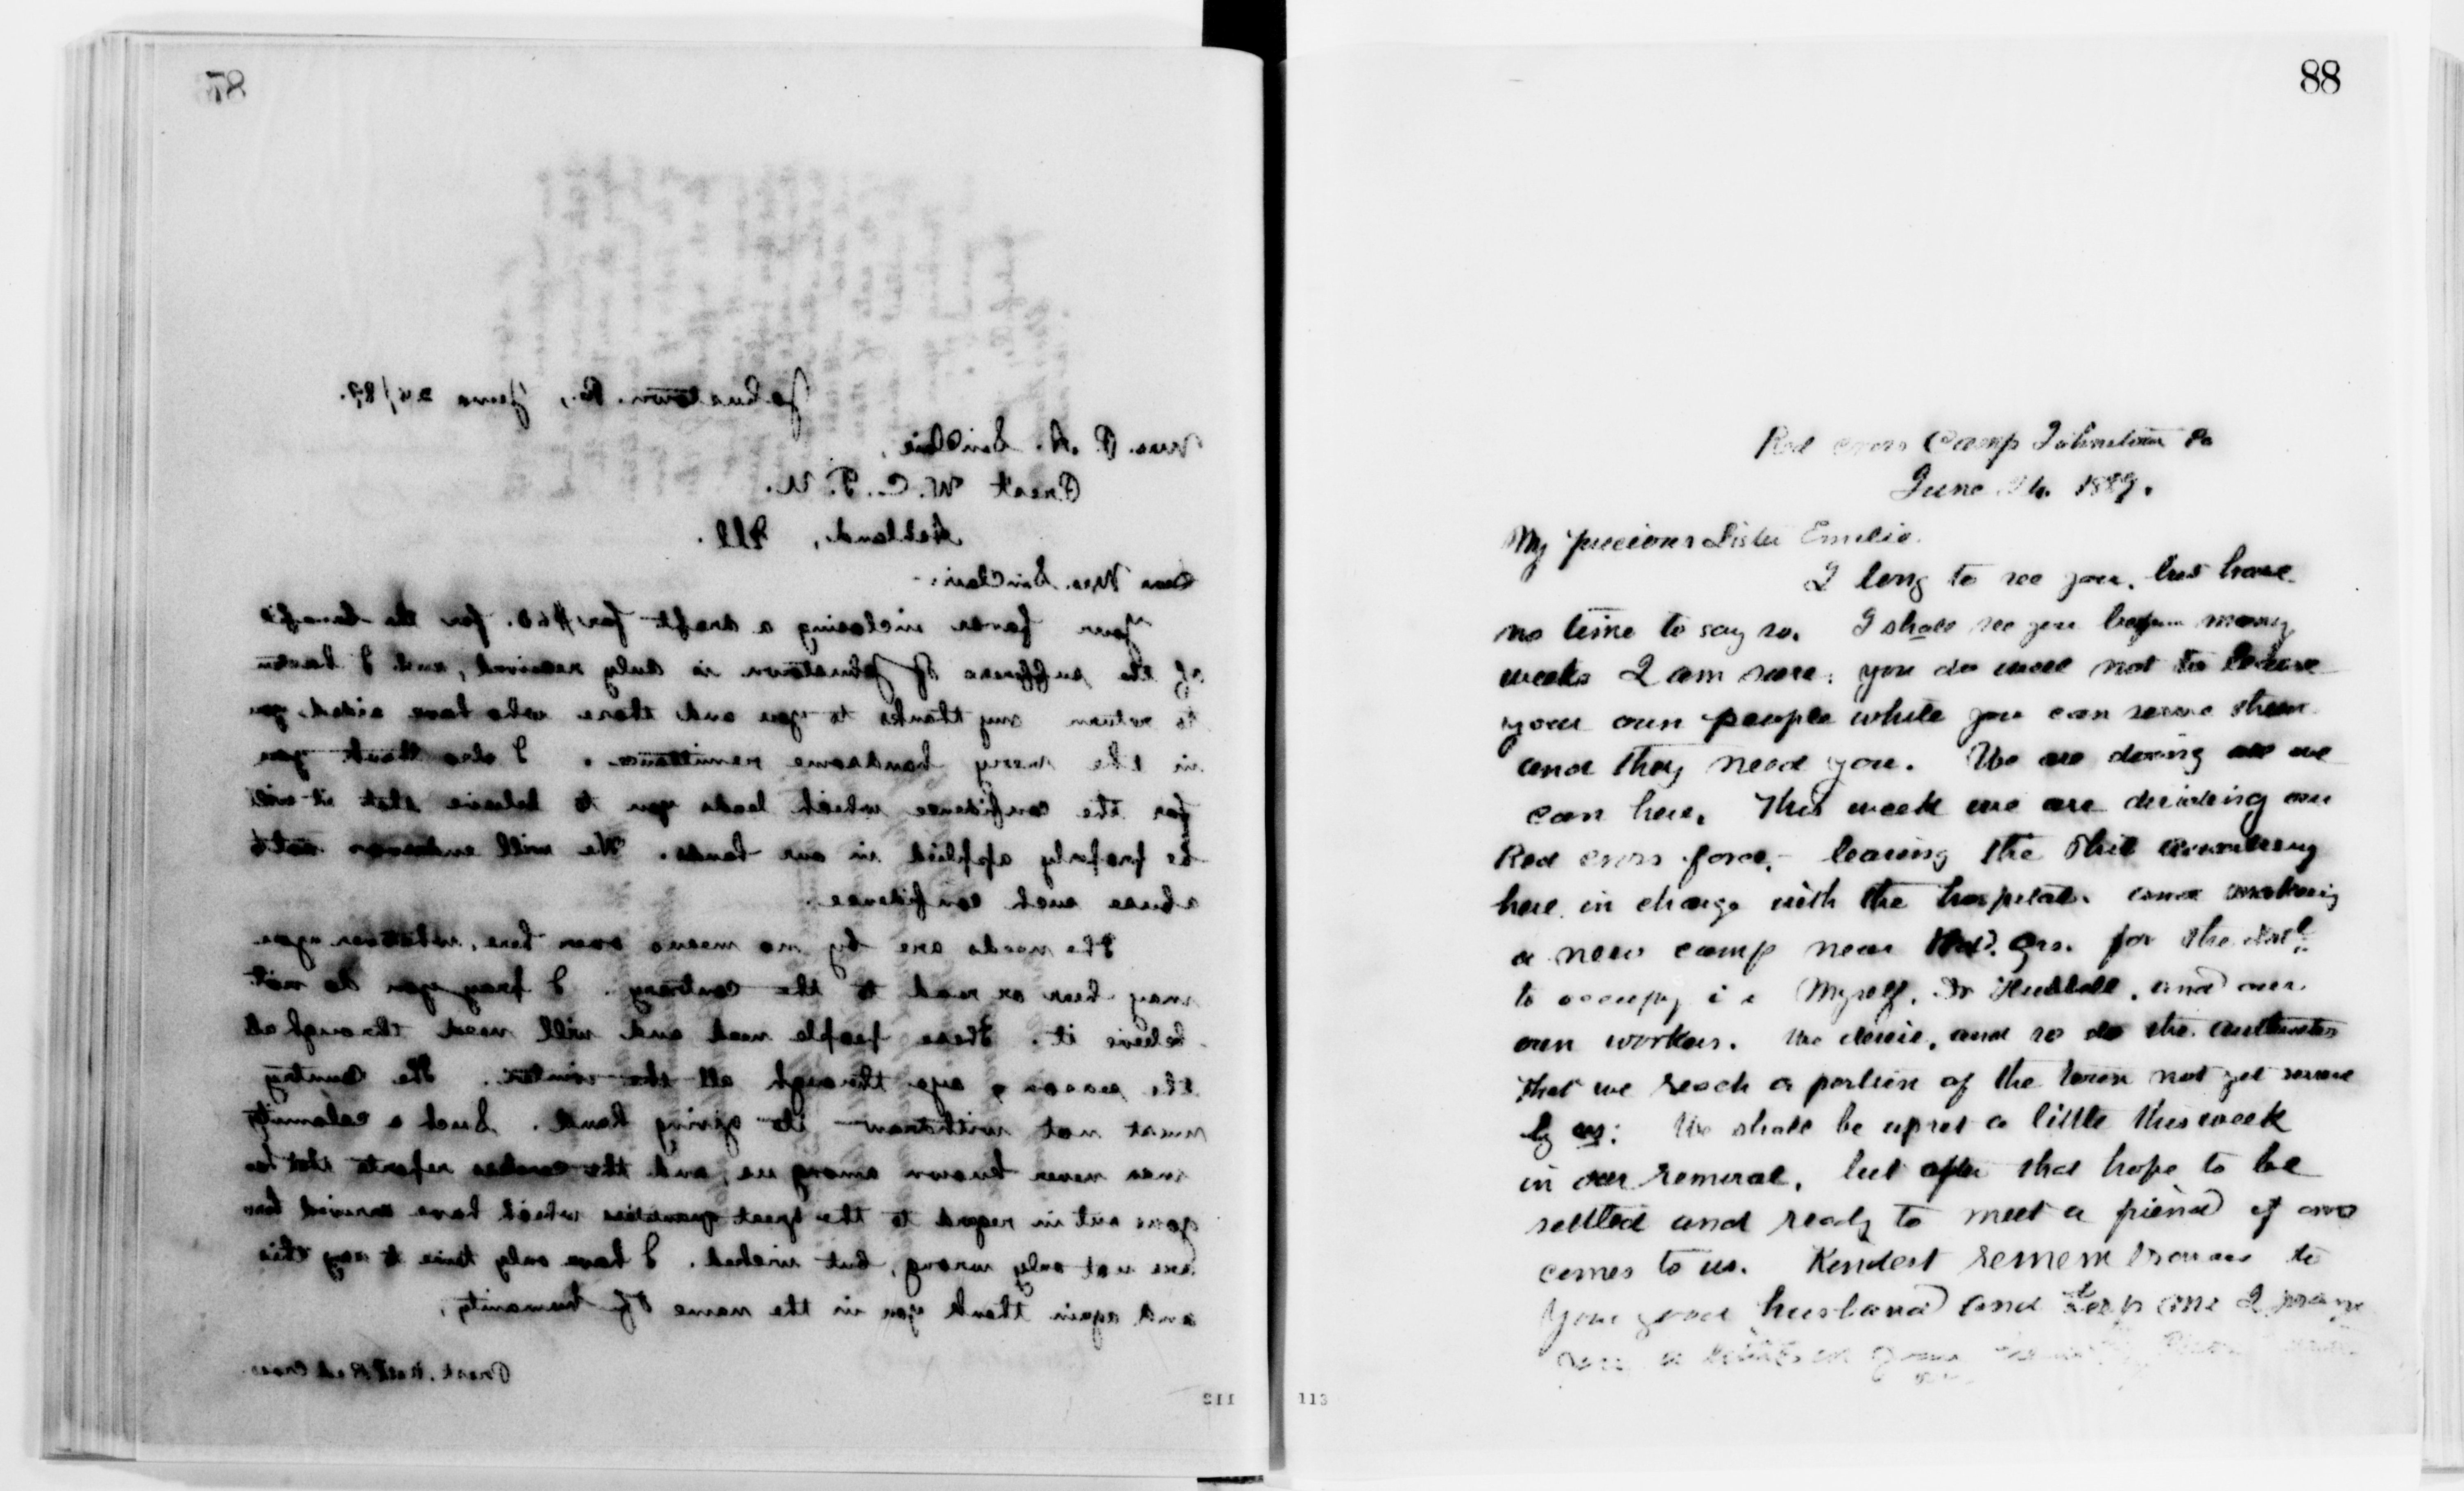 87
Johnstown. Pa., June 24/89.
Mrs. P. A. SinClair,
Prest W. C. T. U.
Ashland, Ill.
Dear Mrs. SinClair:-
Your favor inclosing a draft for $60. for the benefit
of the sufferers of Johnstown is duly received, and I hasten
to return my thanks to you and those who have aided you
in the very handsome remittance. I also thank you
for the confidence which leads you to believe that it will
be properly applied in our hands. We will endeavor not to
abuse such confidence.
The needs are by no means over here, whatever you
may hear or read to the contrary. I pray you do not
believe it. These people need and will need through all
the season, aye through all the winter. The Country
must not withdraw its giving hand. Such a calamity
was never known among us, and the careless reports that have
gone out in regard to the great quantities which have arrived here
are not only wrong, but wicked. I have only time to say this
and again thank you in the name of humanity,
Prest. Natl Red Cross.
112
88
Red Cross Camp Johnstown Pa
June 24. 1889.
My precious Sister Emilie.
I long to see you, but have
no time to say so. I shall see you before many
weeks I am sure: you do well not to leave
your own people while you can serve them
and they need you. We are doing all we
can here. This week we are dividing our
Red Cross force,- leaving the Phil
here in charge with the hospital. and making
a new camp near Hd. Qrs. for the Natl.
to occupy i e Myself, Dr Hubbell, and our
own workers. We desire, and so do the authorities
that we reach a portion of the town not yet served
by us: We shall be upset a little this week
in our removal, but after that hope to be
settled and ready to meet a friend if one
comes to us. Kindest remembrances to
your good husband and keep me I pray
113